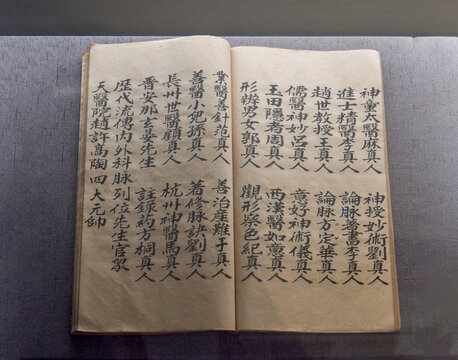 神童太醫麻真人 神授妙術劉真人
進士精醫李真人 論脉蓍書李真人
趙世教授王真人 論脉方定華真人
儒醫神妙呂真人 意好神術儀真人
玉田隱者周真人 西漢醫如意真人
形辨男女郭真人 觀形察色紀真人
醫善針范真人 善治産難于真人
善醫小兒孫真人 著修脉訣劉真人
長州世醫顧真人 杭州神醫馬真人
晋安那玄晏先生 註錄药士桐真人
歷代流傳内外科脉列位先生官家
天醫院趙許高陶四大元帥